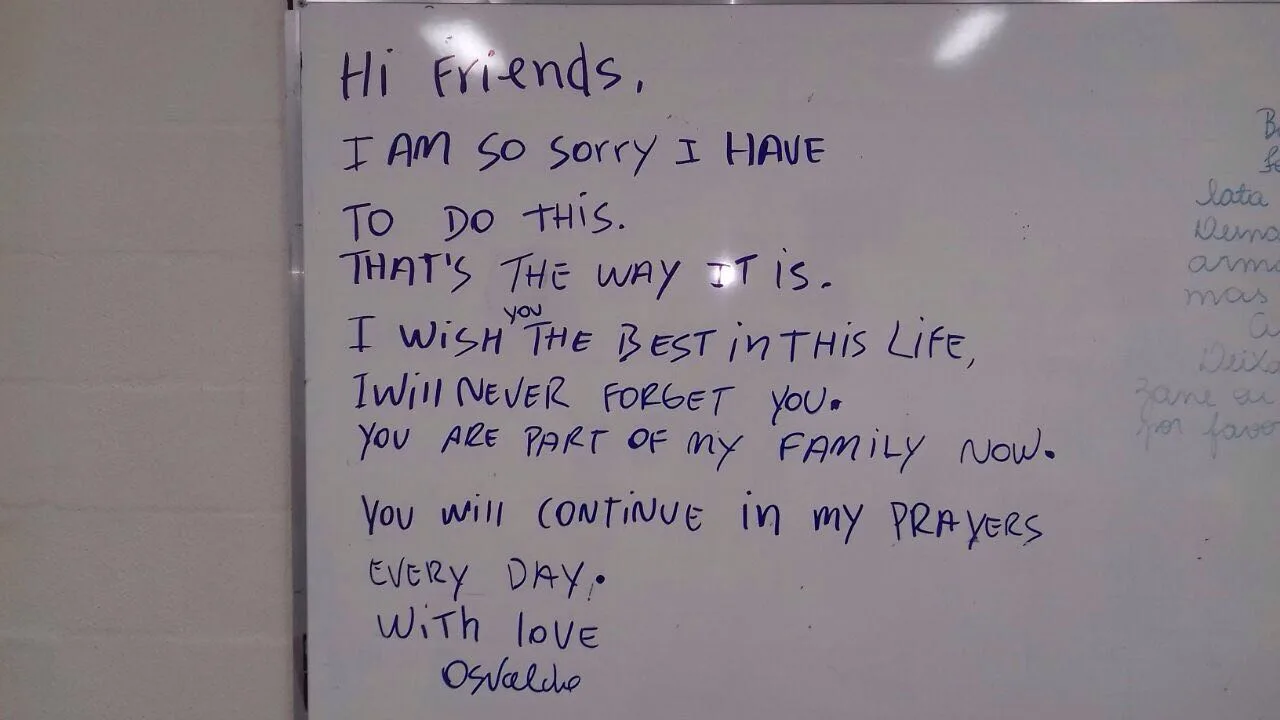 Hi Friends,
I AM SO SORRY I HAVE
TO DO THIS.
THAT'S THE WAY IT IS.
I WISH you THE BEST in THIS LIFE,
I Will NEVER FORGET YOU.
YOU ARE PART OF MY FAMILY NOW.
YOU Will CONTINUE in my PRAYERS
EVERY DAY.
WITH lOVE
Osvaldo
lata
mas
por favor